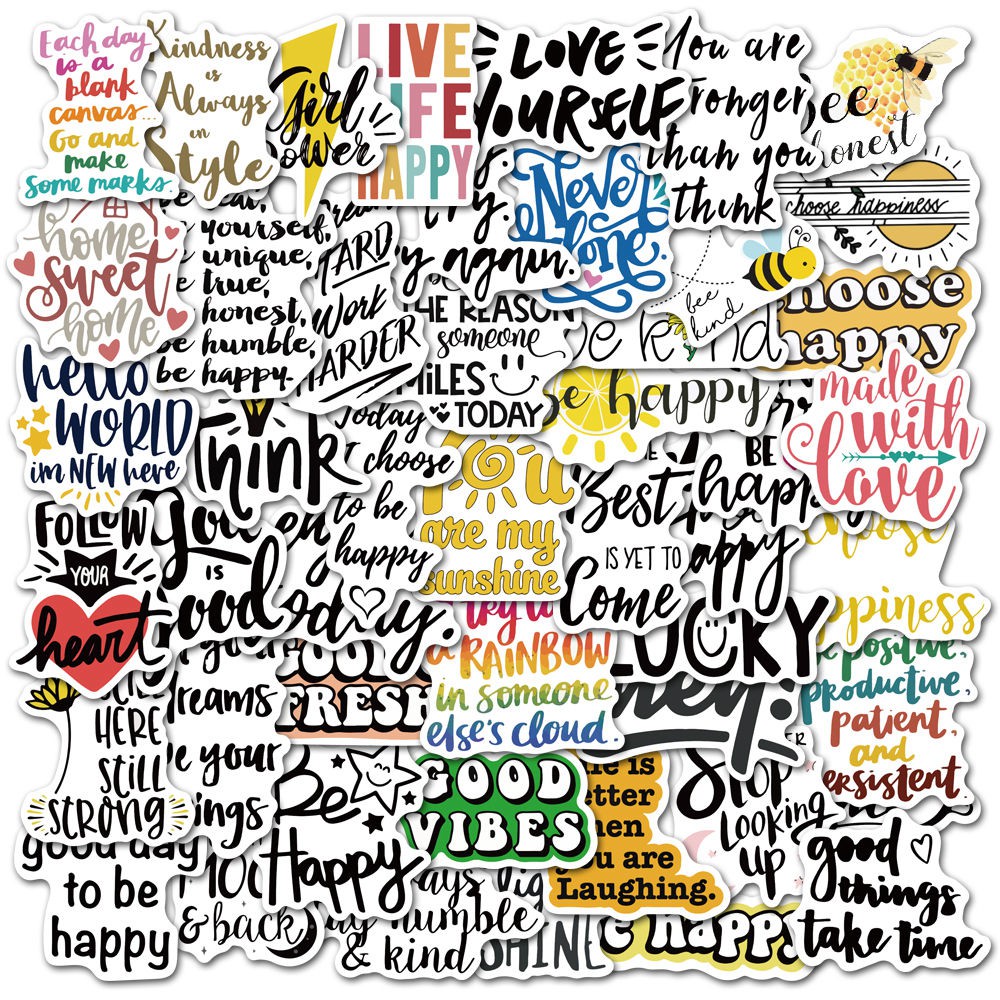 Each day
is a
blank
canvas...
Go and
make
some marks.
Kindness
is
Always
in
Style
Girl
Power
LIVE
LIFE
HAPPY
LOVE
YOURSELF
You are
than you
think
Bee
honest
choose happiness
home
sweet
home
yourself,
unique,
true,
honest,
be humble,
be happy.
Dream
HARD
Work
HARDER
try.
again.
Never
Alone.
bee
kind
be kind
choose
happy
THE REASON
someone
SMiLES
TODAY
be happy
made
with
love
hello
WORLD
im NEW here
Think
Today
I choose
to be
happy
You
are my
sunshine
The
Best
IS YET TO
Come
BE
happy
happy
choose
happiness
FOLLOW
YOUR
heart
IS
good
day.
try to
a RAINBOW
in someone
else's cloud.
LUCKY
be positive,
productive,
patient,
and
persistent.
STILL
HERE
STILL
STRONG
your
dreams
be your
wings
FRESH
hey!
Be
Happy
GOOD
VIBES
is
better
when
you are
Laughing.
Stop
Looking
up
good
things
take time
good day
to be
happy
& back
humble
& kind
SHINE
be happy